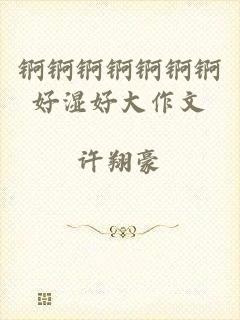 锕锕锕锕锕锕锕
好湿好大作文
许翔豪